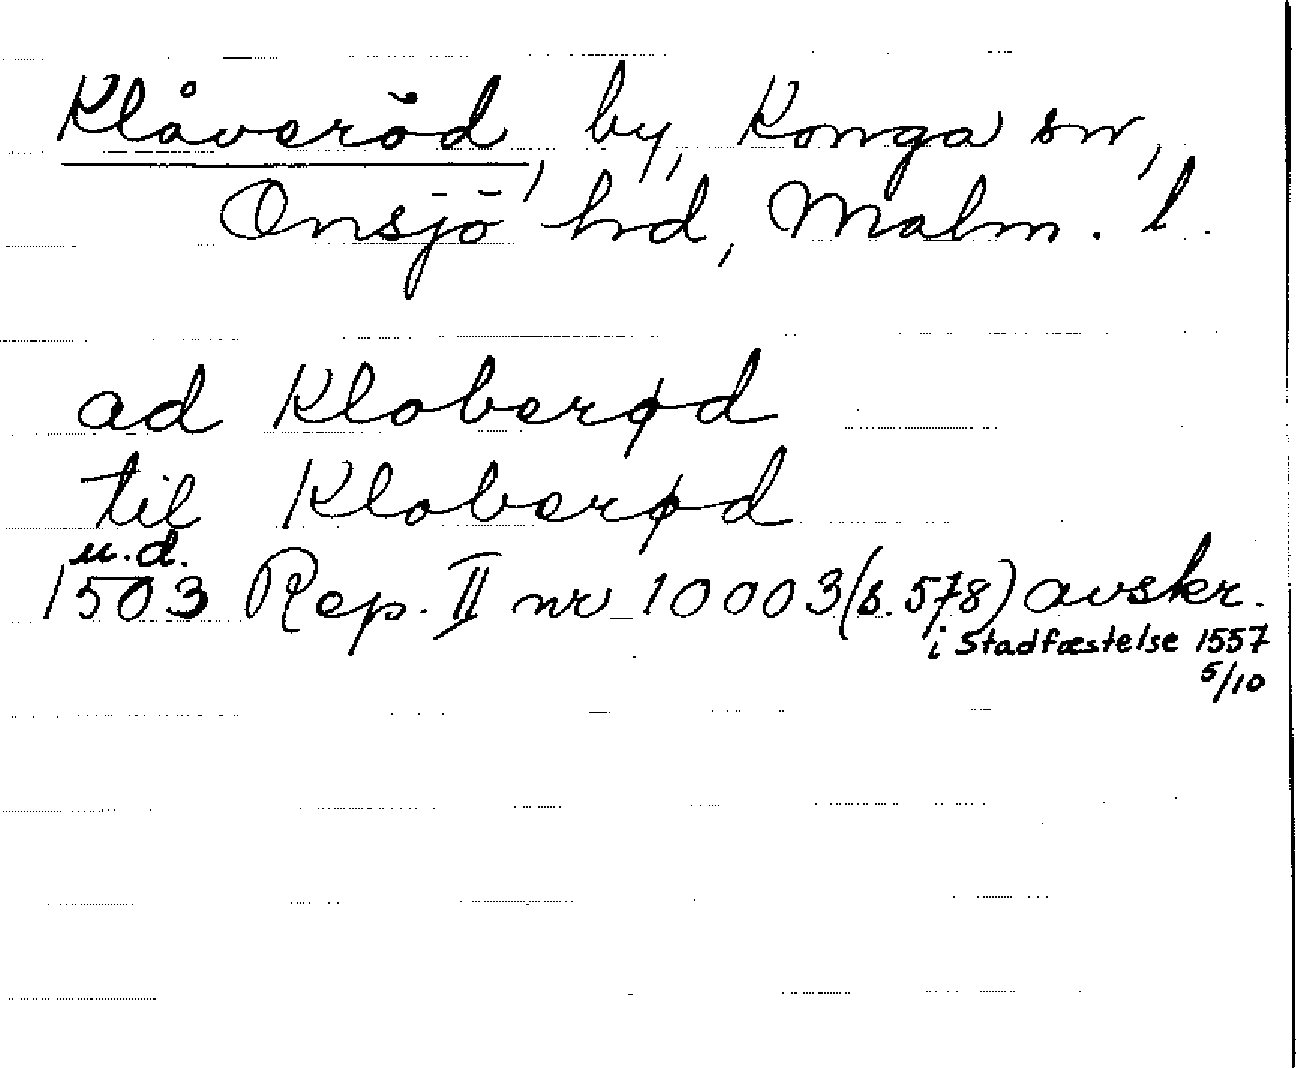 Klåveröd, by, Konga sn,
Onsjö hd, Malm. l.
ad Kloberød
til Kloberød
u.d.
1503 Rep. II nr 10003 (s. 578) avskr.
i Stadfæstelse 1557
5/10